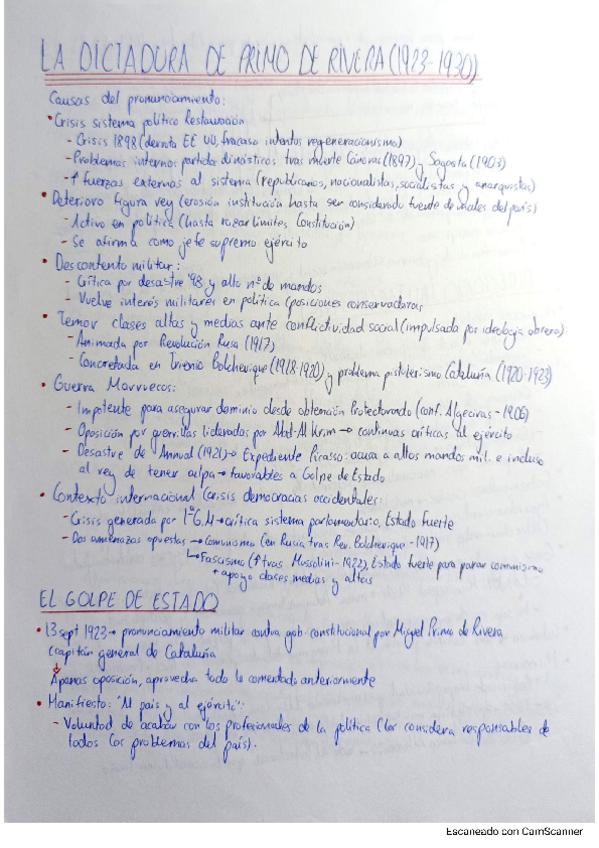 LA DICTADURA DE PRIMO DE RIVERA (1923-1930)
Causas del pronunciamiento:
• Crisis sistema político Restauración
- Crisis 1898 (derrota EE UU, fracaso intentos regeneracionismo)
- Problemas internos partidos dinásticos tras muerte Cánovas (1897) y Sagasta (1903)
- ↑ fuerzas externas al sistema (republicanos, nacionalistas, socialistas y anarquistas)
• Deterioro figura rey (erosión institución hasta ser considerado fuente de males del país)
- Activo en política (hasta rozar límites Constitución)
- Se afirma como jefe supremo ejército
• Descontento militar:
- Crítica por desastre '98 y alto nº de mandos
- Vuelve interés militares en política (posiciones conservadoras
• Temor clases altas y medias ante conflictividad social (impulsada por ideología obrera):
- Animada por Revolución Rusa (1917)
- Concretada en Trienio Bolchevique (1918-1920) y problema pistolerismo Cataluña (1920-1923)
• Guerra Marruecos:
- Impotente para asegurar dominio desde obtención Protectorado (conf. Algeciras - 1906)
- Oposición por guerrillas lideradas por Abd-Al Krim → continuas críticas al ejército
- Desastre de Annual (1921) → Expediente Picasso: acusa a altos mandos mil. e incluso
al rey de tener culpa → favorables a Golpe de Estado
• Contexto internacional (crisis democracias occidentales:
- Crisis generada por 1ªG.M → crítica sistema parlamentario, Estado fuerte
- Dos amenazas opuestas → Comunismo (en Rusia tras Rev. Bolchevique - 1917)
↳ Fascismo (↑ tras Mussolini - 1922), Estado fuerte para parar comunismo
+ apoyo clases medias y altas
EL GOLPE DE ESTADO
• 13 sept 1923 → pronunciamiento militar contra gob. constitucional por Miguel Primo de Rivera
(capitán general de Cataluña
↓
Apenas oposición, aprovecha todo lo comentado anteriormente
• Manifiesto: "Al país y al ejército":
- Voluntad de acabar con los profesionales de la política (los considera responsables de
todos los problemas del país).
Escaneado con CamScanner